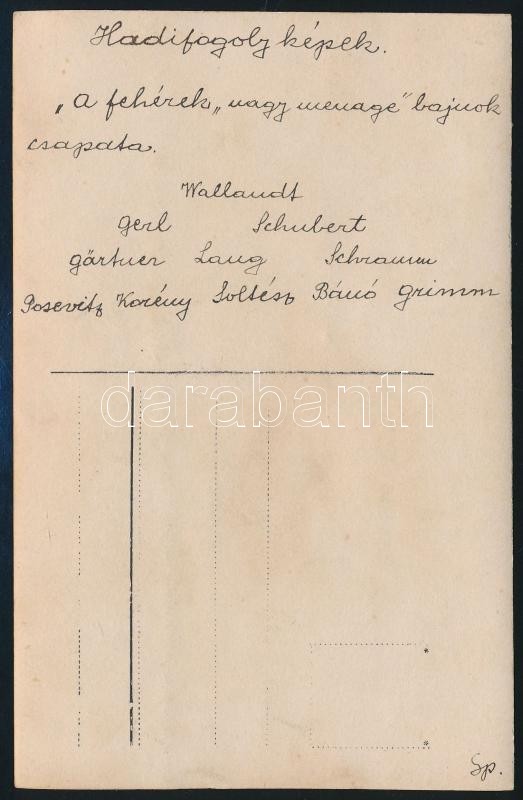 Hadifogoly képek.
„a fehérek„ nagy menage” bajnok
csapata.
Wallandt
Gerl Schubert
Gärtner Lang Schramm
Posevitz Korény Soltész Bánó Grimm
darabanth
Sp.